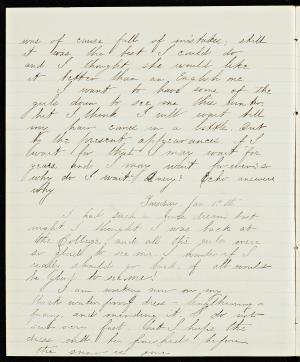 was of course full of mistakes; still
it was the best I could do
and I thought she would like
it better than an English one
I want to have some of the
girls down to see me this winter,
but I think I will wait till
my hair comes in a little. But
by the present appearances if I
wait for that I may wait for
years and I may wait forever; so
why do I wait? Query? Echo answers
Why
Tuesday Jan 19th
I had such a dream last
night I thought I was back at
the College; and all the girls were
so glad to see me. I wonder if I
really should go back, if all would
be glad to see me!
I am working now on my
black waterproof dress - lengthening a
and mending it, I do not
very fast, but I hope the
dress will be finished before
the snow is gone